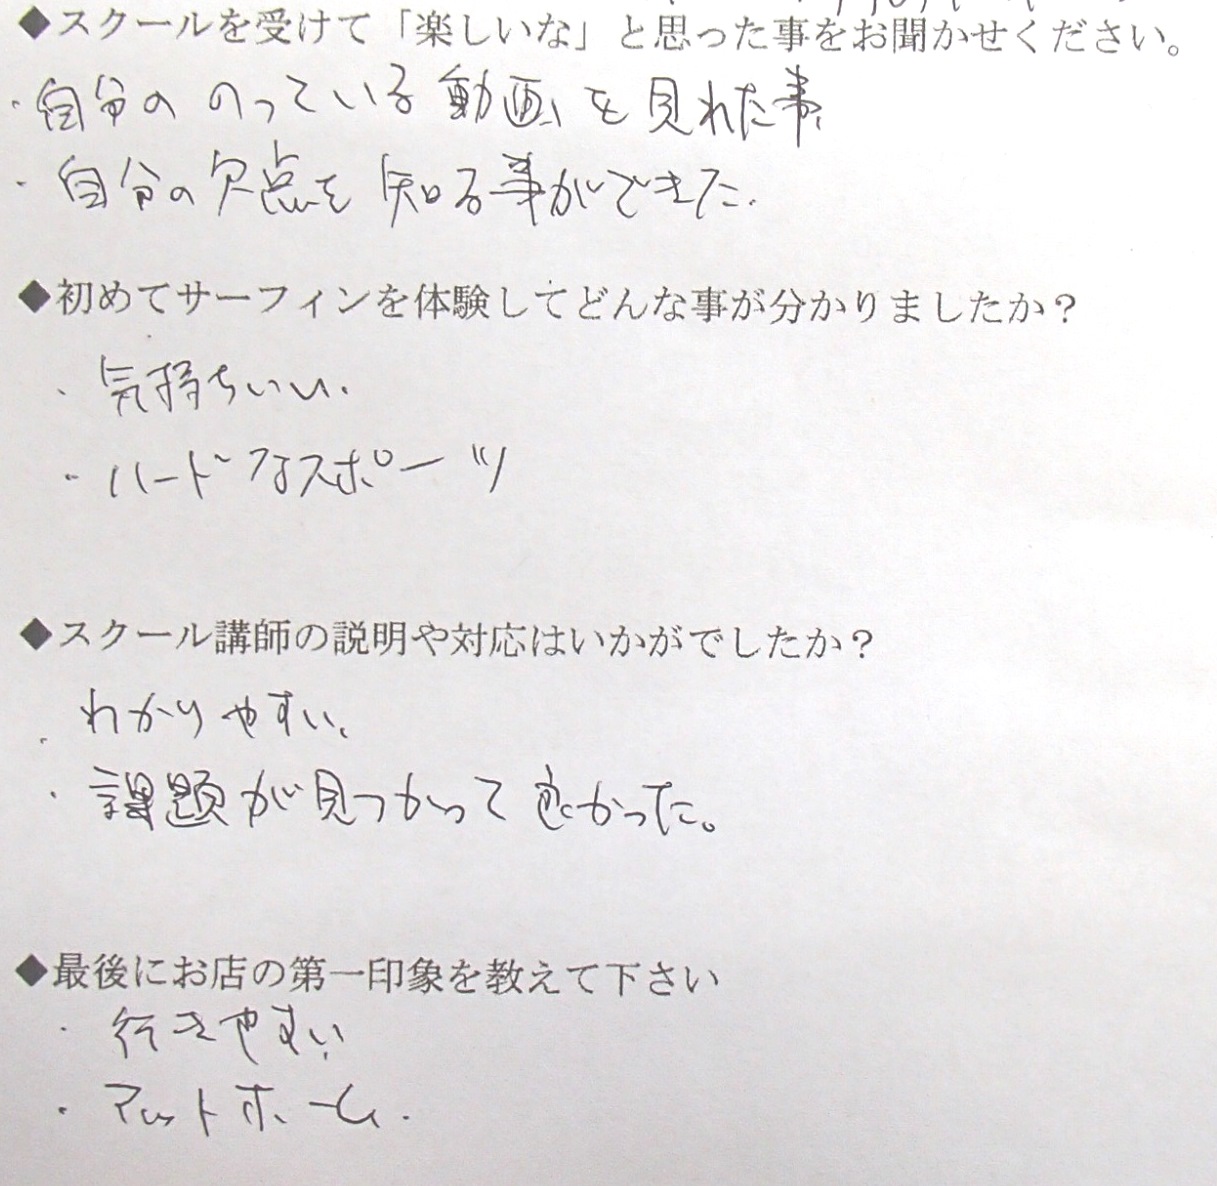 ◆スクールを受けて「楽しいな」と思った事をお聞かせください。
・自分の のっている 動画を見れた事
・自分の欠点を 知る事ができた.
◆初めてサーフィンを体験してどんな事が分かりましたか？
・気持ちいい.
・ハードなスポーツ
◆スクール講師の説明や対応はいかがでしたか？
・わかりやすい、
・課題が見つかって良かった。
◆最後にお店の第一印象を教えて下さい
・行きやすい
・アットホーム.